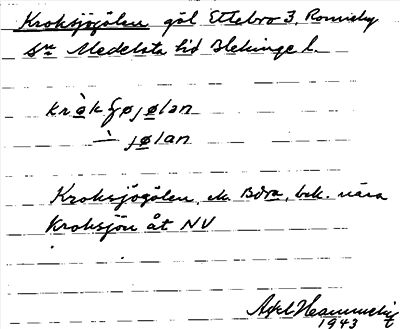 Kroksjögölen göl Ettebro 3, Ronneby
sn Medelsta hd Blekinge l.
kròkʃøjølan
∸ jølan
Kroksjögölen, ek. Bdra, bek. nära
Kroksjön åt NV
Axel
1943